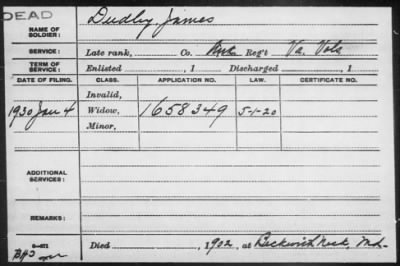 DEAD
NAME OF SOLDIER: Dudley, James
SERVICE: Late rank, Co. Reg't Va. Vols
TERM OF SERVICE: Enlisted , 1 Discharged , 1
DATE OF FILING. CLASS. APPLICATION NO. LAW. CERTIFICATE NO.
Invalid,
1930 Jan 4 Widow, 1658349 5-1-20
Minor,
ADDITIONAL SERVICES:
REMARKS:
Died , 1902, at Beckwith Neck, Md.